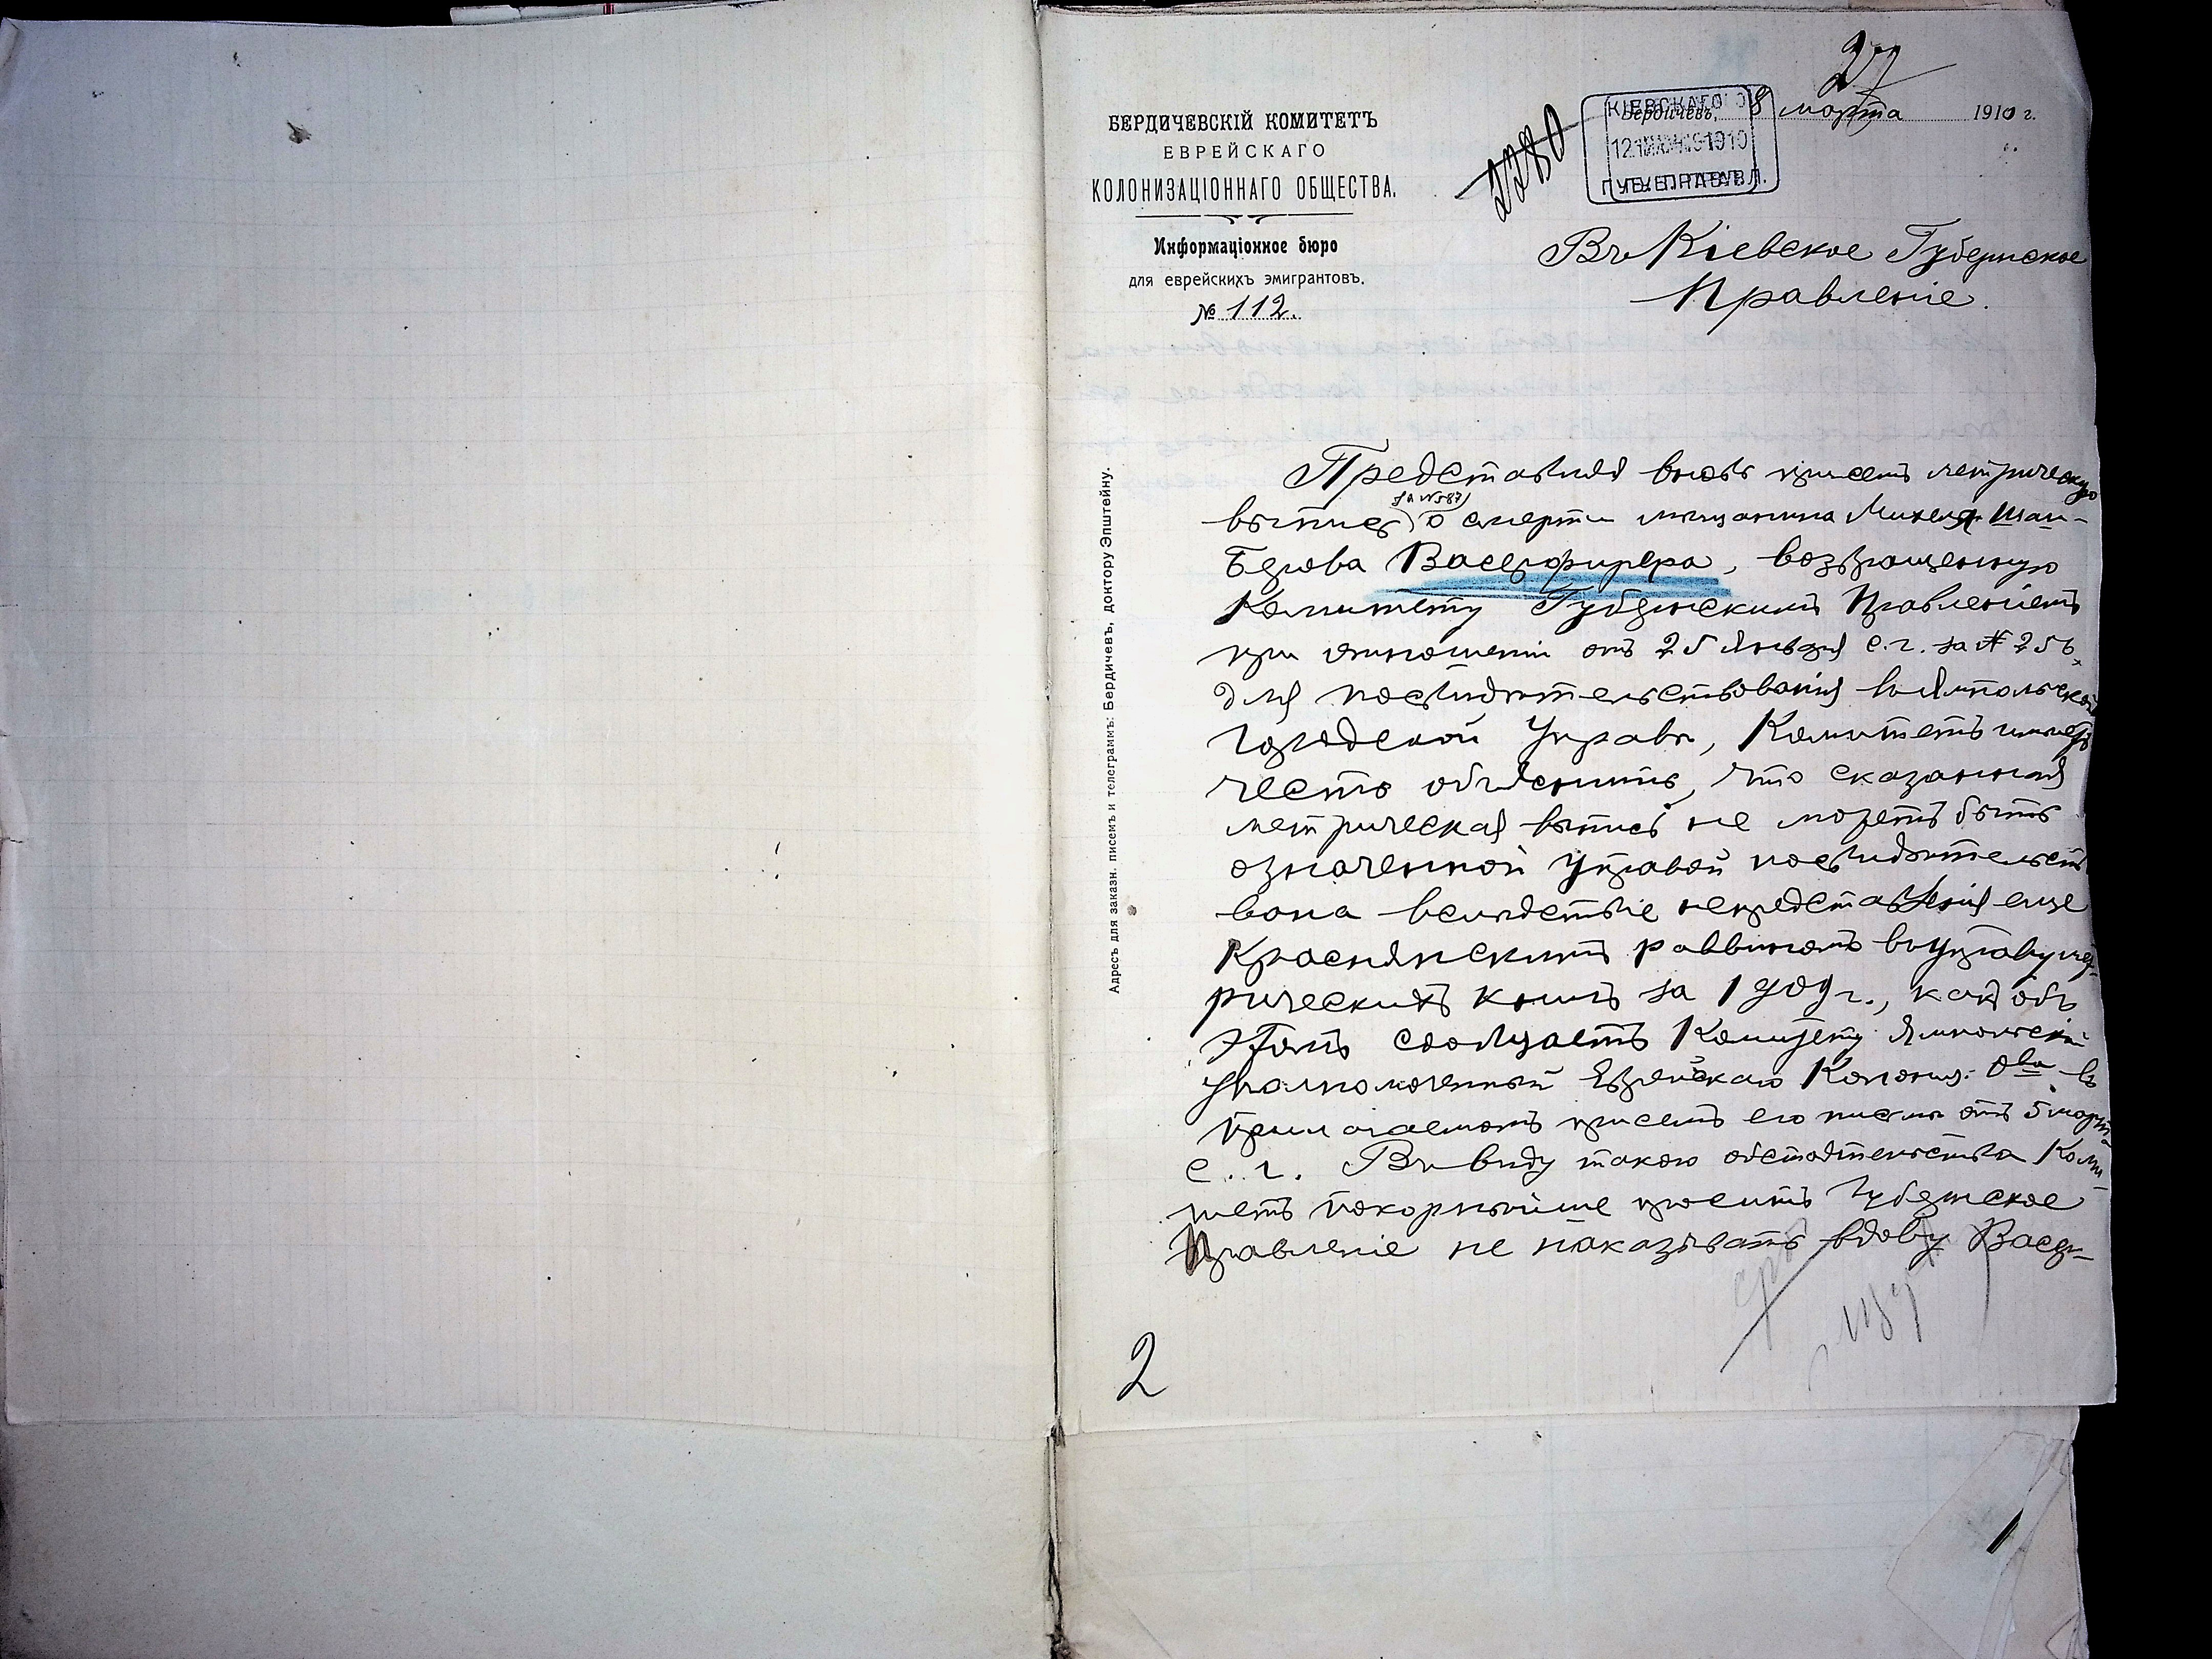 27
БЕРДИЧЕВСКІЙ КОМИТЕТЪ
ЕВРЕЙСКАГО
КОЛОНИЗАЦІОННАГО ОБЩЕСТВА.
Информаціонное бюро
для еврейскихъ эмигрантовъ.
№ 112.
2280
Бердичевъ, 8 марта 1910 г.
КІЕВСКАГО
1910
ГУБ. ПРАВЛ.
Въ Кіевское Губернское
Правленіе.
Адресъ для заказн. писемъ и телеграммъ: Бердичевъ, доктору Эпштейну.
Представляя вновь при семъ метрическую
выпись (за № 587) о смерти мѣщанина Михеля Шая-
Берова Васерфирера, возвращенную
Комитету Губернскимъ Правленіемъ
при отношеніи отъ 25 Января с.г. за №
для посвидѣтельствованія въ Ямпольской
Городской Управѣ, Комитетъ имѣетъ
честь объяснить, что сказанная
метрическая выпись не можетъ быть
означенной Управой посвидѣтельст
вона вслѣдствіе непредставленія еще
Краснянскимъ раввиномъ въ Управу мет-
рическихъ книгъ за 1909 г., какъ объ
этомъ сообщаетъ Комитету Ямпольскій
уполномоченный Еврейскаго Колониз. О-ва въ
прилагаемомъ при семъ его письмѣ отъ 5 марта
с. г. Въ виду такого обстоятельства Коми-
тетъ покорнѣйше проситъ Губернское
Правленіе не наказывать вдову Васер-
2